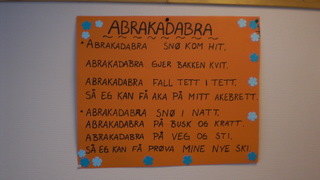 ABRAKADABRA
• ABRAKADABRA SNØ KOM HIT.
ABRAKADABRA GJER BAKKEN KVIT.
ABRAKADABRA FALL TETT I TETT.
SÅ EG KAN FÅ AKA PÅ MITT AKEBRETT.
• ABRAKADABRA SNØ I NATT.
ABRAKADABRA PÅ BUSK OG KRATT.
ABRAKADABRA PÅ VEG OG STI.
SÅ EG KAN FÅ PRØVA MINE NYE SKI.